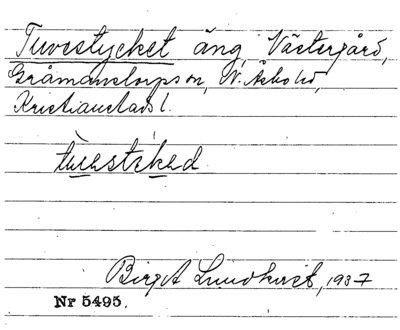 Tuvestycket äng, Västergård,
Gråmanstorps sn, N. Åsbo hd,
Kristianstads l.
Birgit Lundkvist, 1937
Nr 5495.